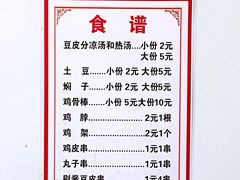 食谱
豆皮分凉汤和热汤....小份2元
大份5元
土豆........小份2元 大份5元
焖子........小份2元 大份5元
鸡骨棒...小份5元大份10元
鸡脖................2元1根
鸡架................2元1个
鸡皮串..............1元1串
丸子串..............1元1串